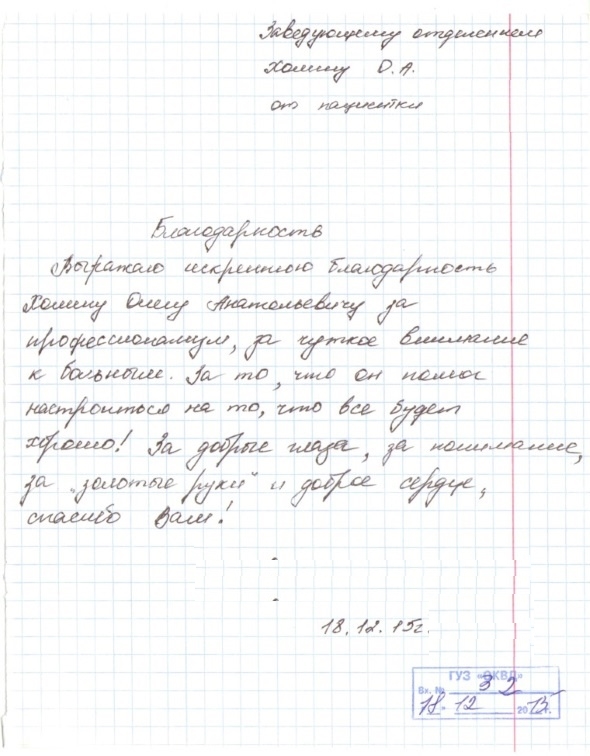 Заведующему отделением
Хомину О.А.
от пациентки
Благодарность
Выражаю искреннюю благодарность
Хомину Олегу Анатольевичу за
профессионализм, за чуткое внимание
к больным. За то, что он помог
настроиться на то, что все будет
хорошо! За добрые глаза, за понимание,
за "золотые руки" и доброе сердце,
спасибо Вам!
18.12.15г.
ГУЗ «ОКВД»
Вх. № 32
18. 12 2015г.